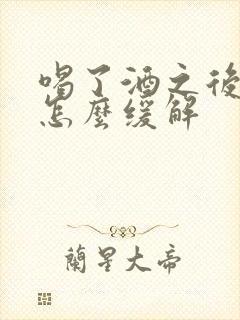 喝了酒之後
怎麼緩解
蘭星大帝